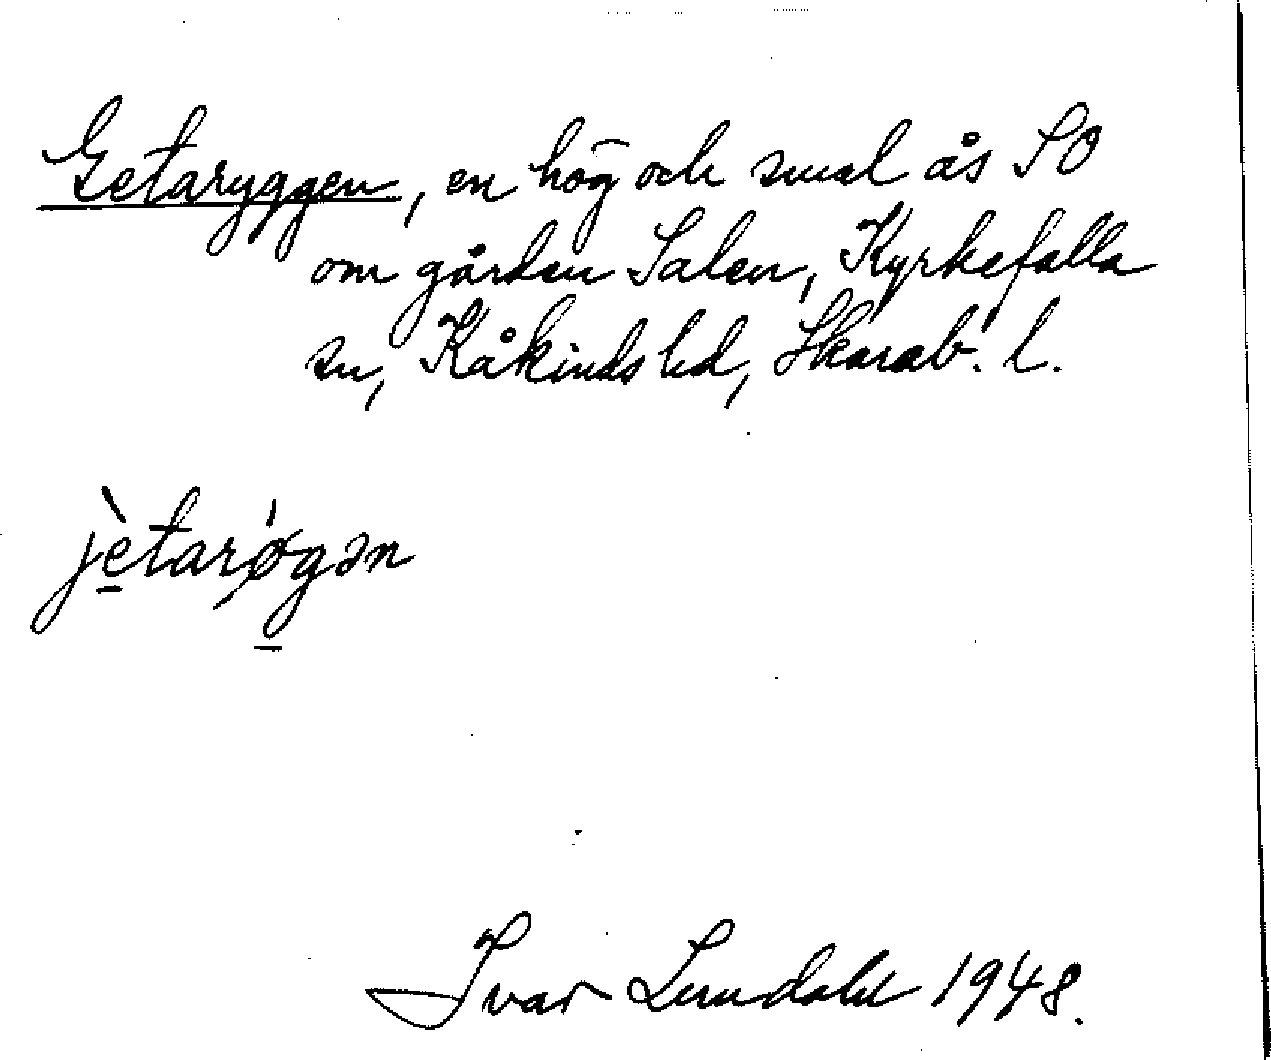 Getaryggen, en hög och smal ås SO
om gården Salen, Kyrkefalla
sn, Kåkinds hd, Skarab. l.
jètarǿgən
Ivar Lundahl 1948.